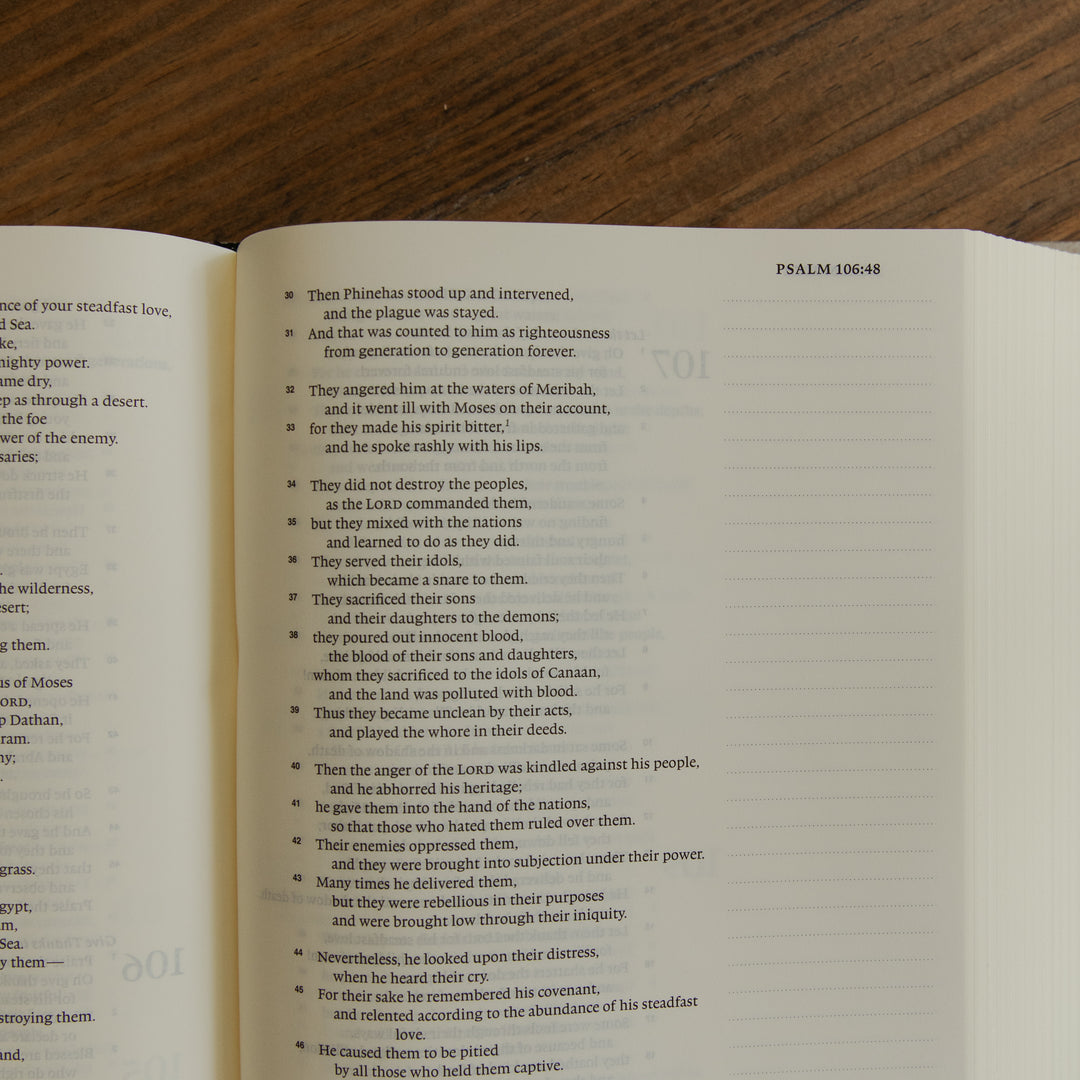 nce of your steadfast love,
d Sea.
ke,
mighty power.
ame dry,
ep as through a desert.
the foe
wer of the enemy.
saries;
.
he wilderness,
esert;
g them.
us of Moses
ORD,
p Dathan,
ram.
ny;
.
grass.
gypt,
am,
Sea.
y them—
stroying them.
and,
PSALM 106:48
30 Then Phinehas stood up and intervened,
and the plague was stayed.
31 And that was counted to him as righteousness
from generation to generation forever.
32 They angered him at the waters of Meribah,
and it went ill with Moses on their account,
33 for they made his spirit bitter,1
and he spoke rashly with his lips.
34 They did not destroy the peoples,
as the LORD commanded them,
35 but they mixed with the nations
and learned to do as they did.
36 They served their idols,
which became a snare to them.
37 They sacrificed their sons
and their daughters to the demons;
38 they poured out innocent blood,
the blood of their sons and daughters,
whom they sacrificed to the idols of Canaan,
and the land was polluted with blood.
39 Thus they became unclean by their acts,
and played the whore in their deeds.
40 Then the anger of the LORD was kindled against his people,
and he abhorred his heritage;
41 he gave them into the hand of the nations,
so that those who hated them ruled over them.
42 Their enemies oppressed them,
and they were brought into subjection under their power.
43 Many times he delivered them,
but they were rebellious in their purposes
and were brought low through their iniquity.
44 Nevertheless, he looked upon their distress,
when he heard their cry.
45 For their sake he remembered his covenant,
and relented according to the abundance of his steadfast
love.
46 He caused them to be pitied
by all those who held them captive.